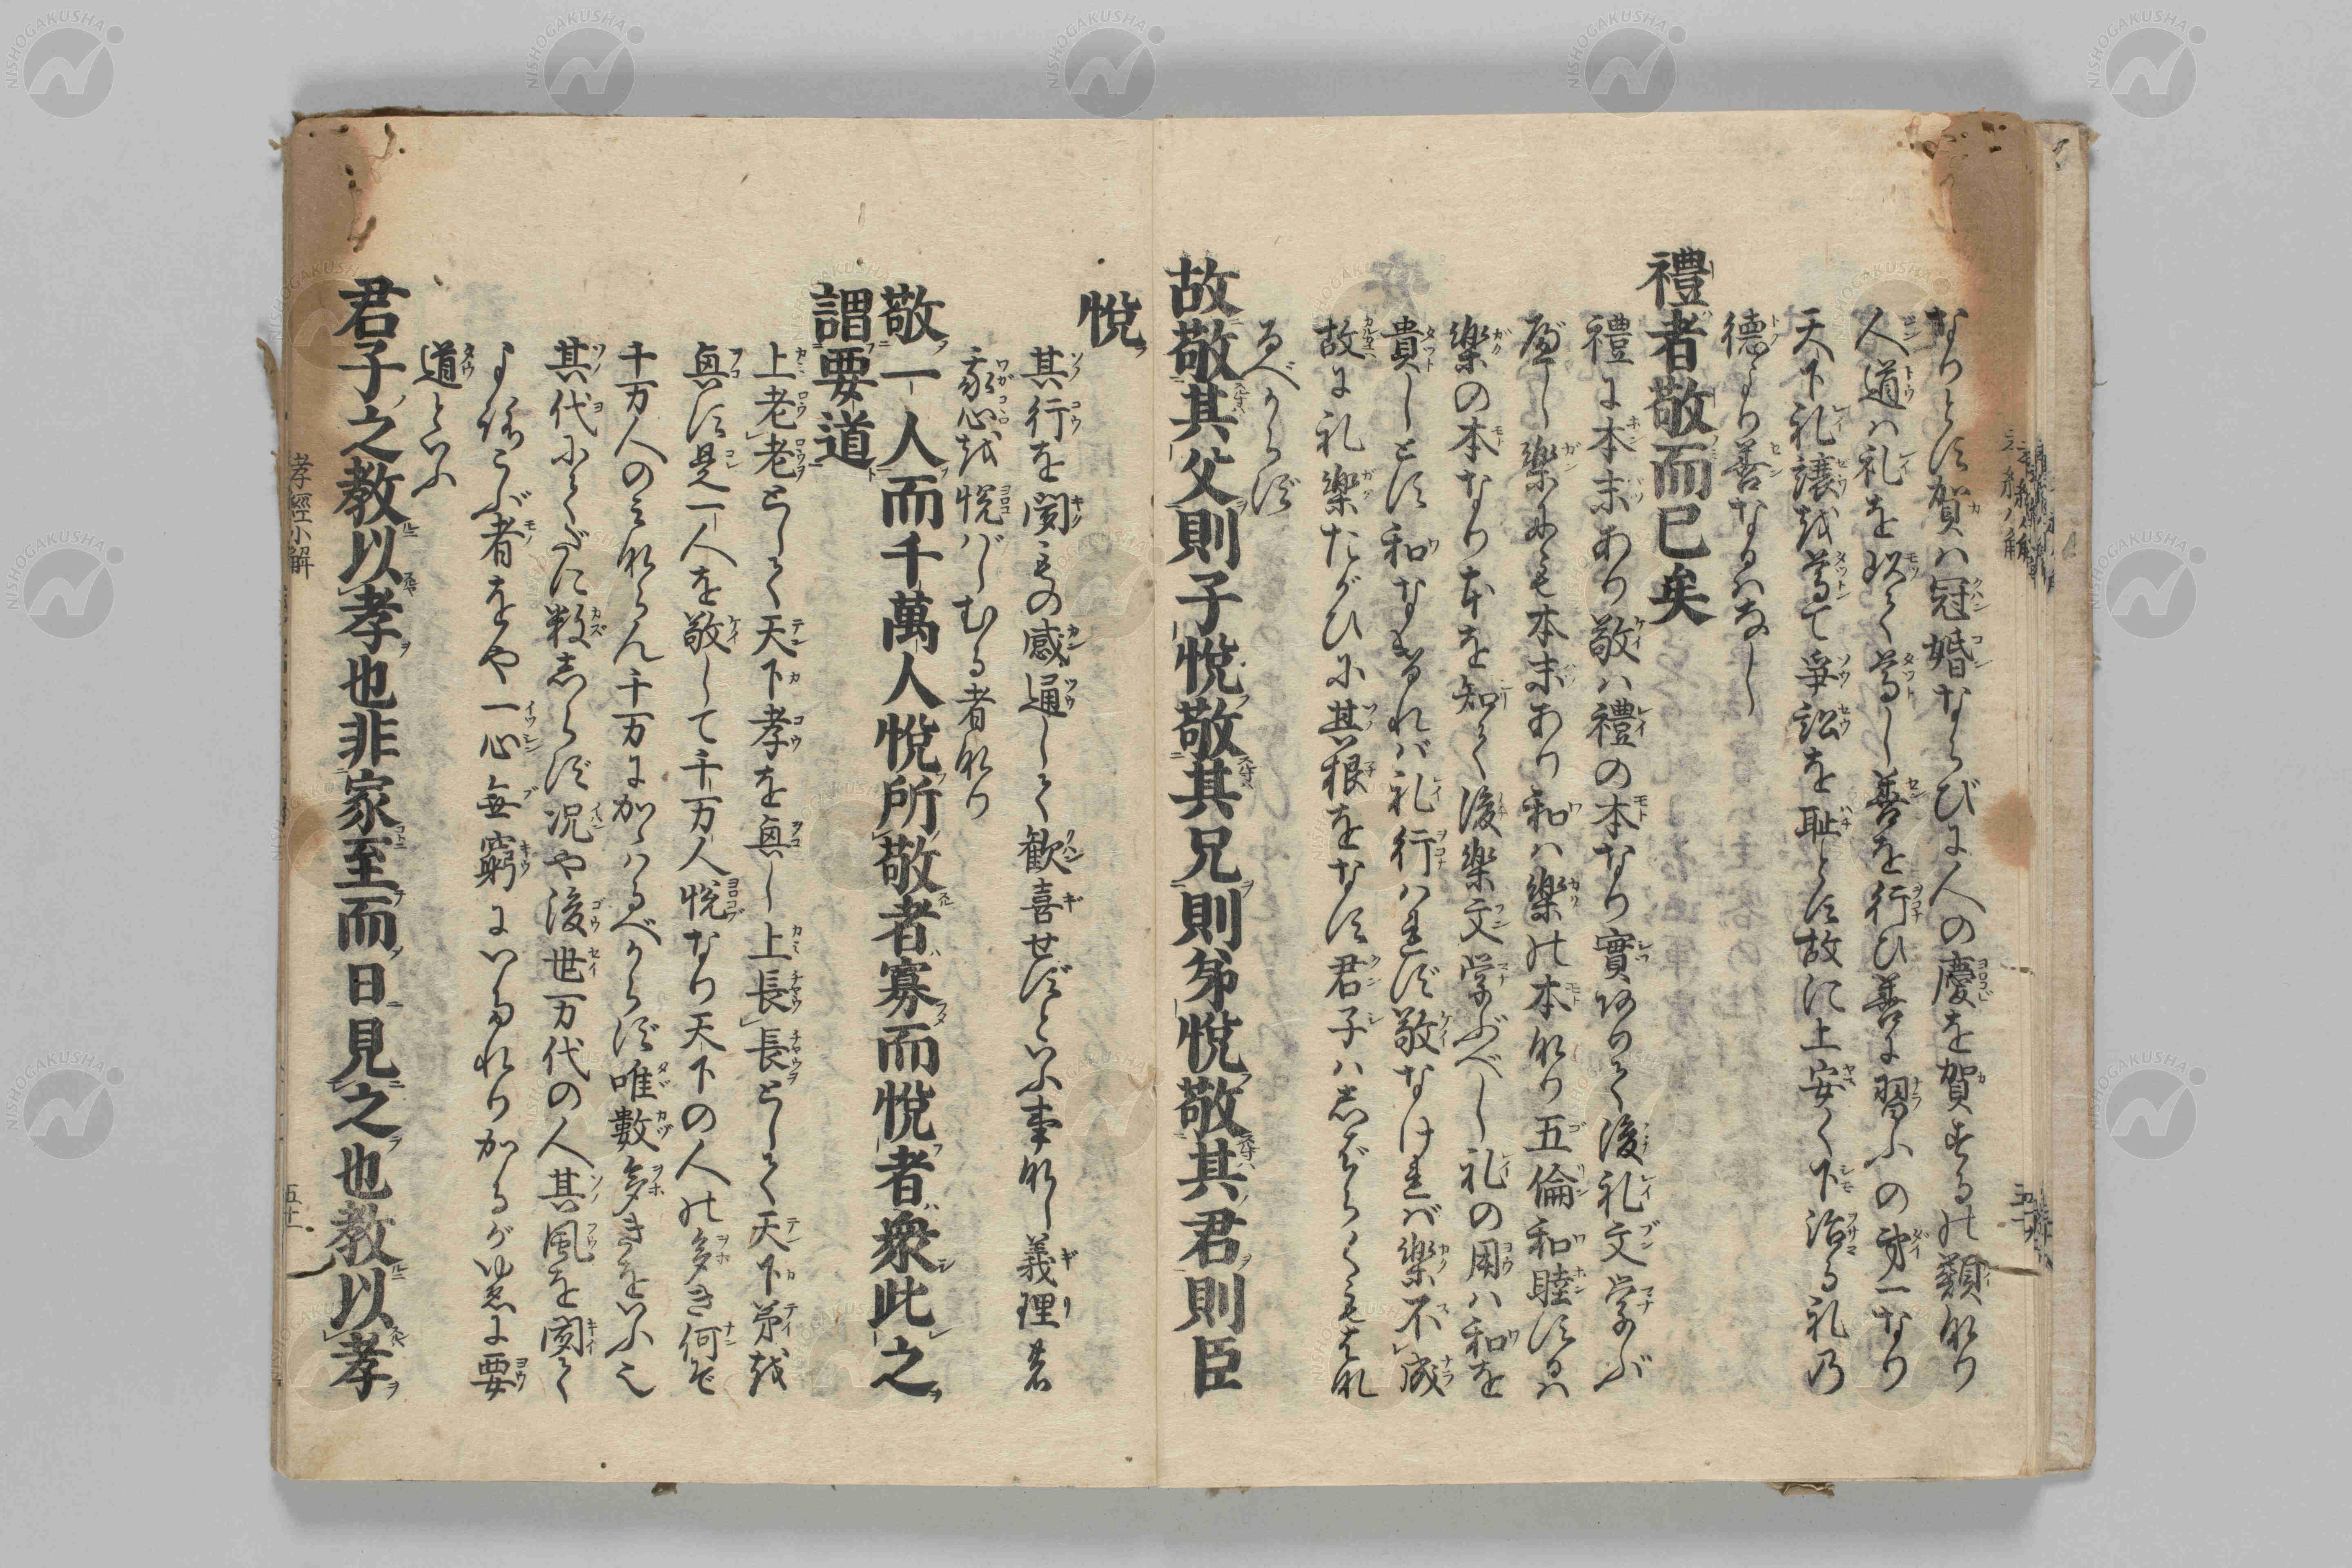 なりとす賀ハ冠婚ならびに人の慶を賀するの類なり
人道ハ礼を以て尊し善を行ひ善に習ふの第一なり
天下礼譲を尊て争訟を恥とす故に上安く下治る礼乃
徳より善なるハなし
禮者敬而已矣
禮に本末あり敬ハ禮の本なり實ありて後礼文学ぶ
べし楽にも本末あり和ハ楽の本なり五倫和睦するハ
楽の本なり本を知て後楽文学ぶべし礼の用ハ和を
貴しとす和なければ礼行ハれず敬なければ楽不成
故に礼楽たがひに其根をなす君子ハしばらくもはな
るべからず
故敬其父則子悦敬其兄則弟悦敬其君則臣
悦
其行を聞ものの感通して歓喜せずといふ事なし義理の
我心を悦バしむる者なり
敬一人而千萬人悦所敬者寡而悦者衆此之
謂要道
上老老として天下孝を興し上長長として天下弟を
興す是一人を敬して千万人悦なり天下の人の多き何ぞ
千万人のミならん千万に加ハるべからず唯數多きをいふ也
其代にてだに数しらず况や後世万代の人其風を聞て
よろこぶ者をや一心無窮にいたれりかるがゆゑに要
道といふ
君子之教以孝也非家至而日見之也教以孝
孝經小解
五十一